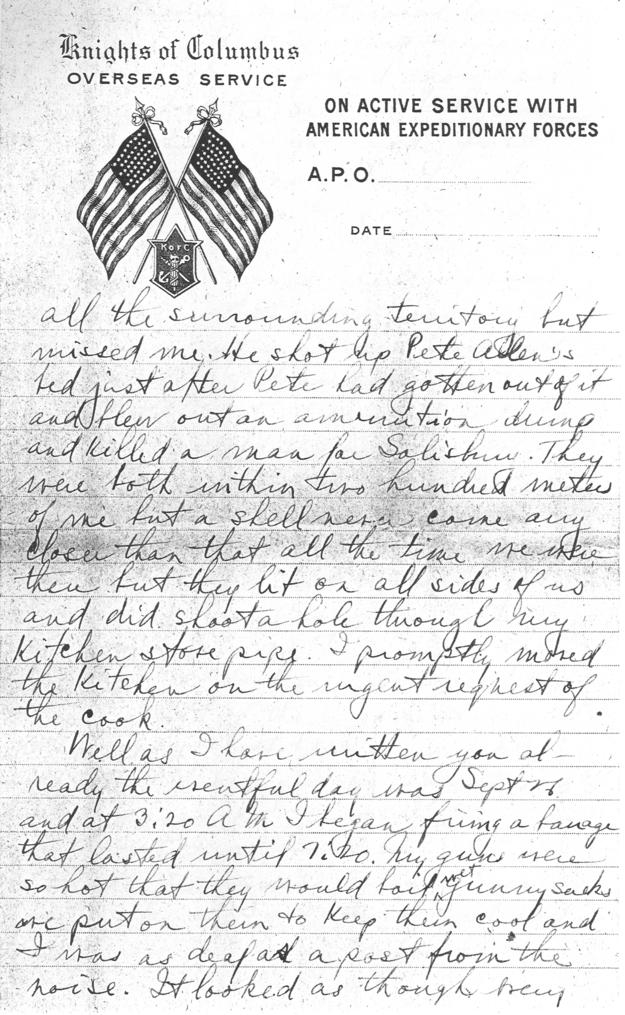 Knights of Columbus
OVERSEAS SERVICE
ON ACTIVE SERVICE WITH
AMERICAN EXPEDITIONARY FORCES
A.P.O.
DATE
K of C
all the surrounding territory but
missed me. He shot up Pete Allen's
bed just after Pete had gotten out of it
and blew out an amunition dump
and killed a man for Salisbury. They
were both within two hundred meters
of me but a shell never come any
closer than that all the time we were
there but they lit on all sides of us
and did shoot a hole through my
Kitchen stove pipe. I promptly moved
the Kitchen on the urgent request of
the cook.
Well as I have written you al-
ready the eventful day was Sept 26
and at 3:20 A M I began firing a barrage
that lasted until 7:20. My guns were
so hot that they would boil wet gunny sacks
we put on them to keep them cool and
I was as deaf as a post from the
noise. It looked as though every